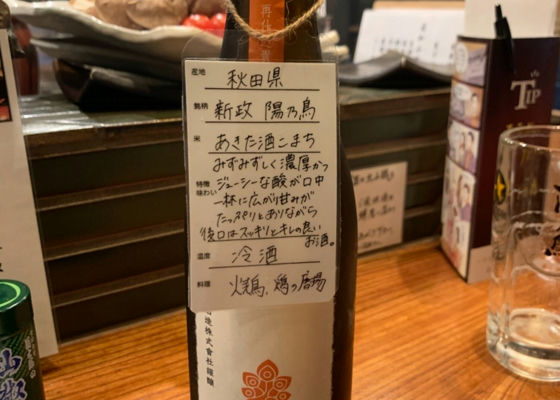 産地 秋田県
銘柄 新政 陽乃鳥
米 あきた酒こまち
特徴 味わい
みずみずしく濃厚かつ
ジューシーな酸が口中
一杯に広がり甘みが
たっぷりとありながら
後口はスッキリとキレの良い
お酒。
温度 冷酒
料理 焼鳥、鶏の唐揚
造株式会社謹醸
TIP
山椒